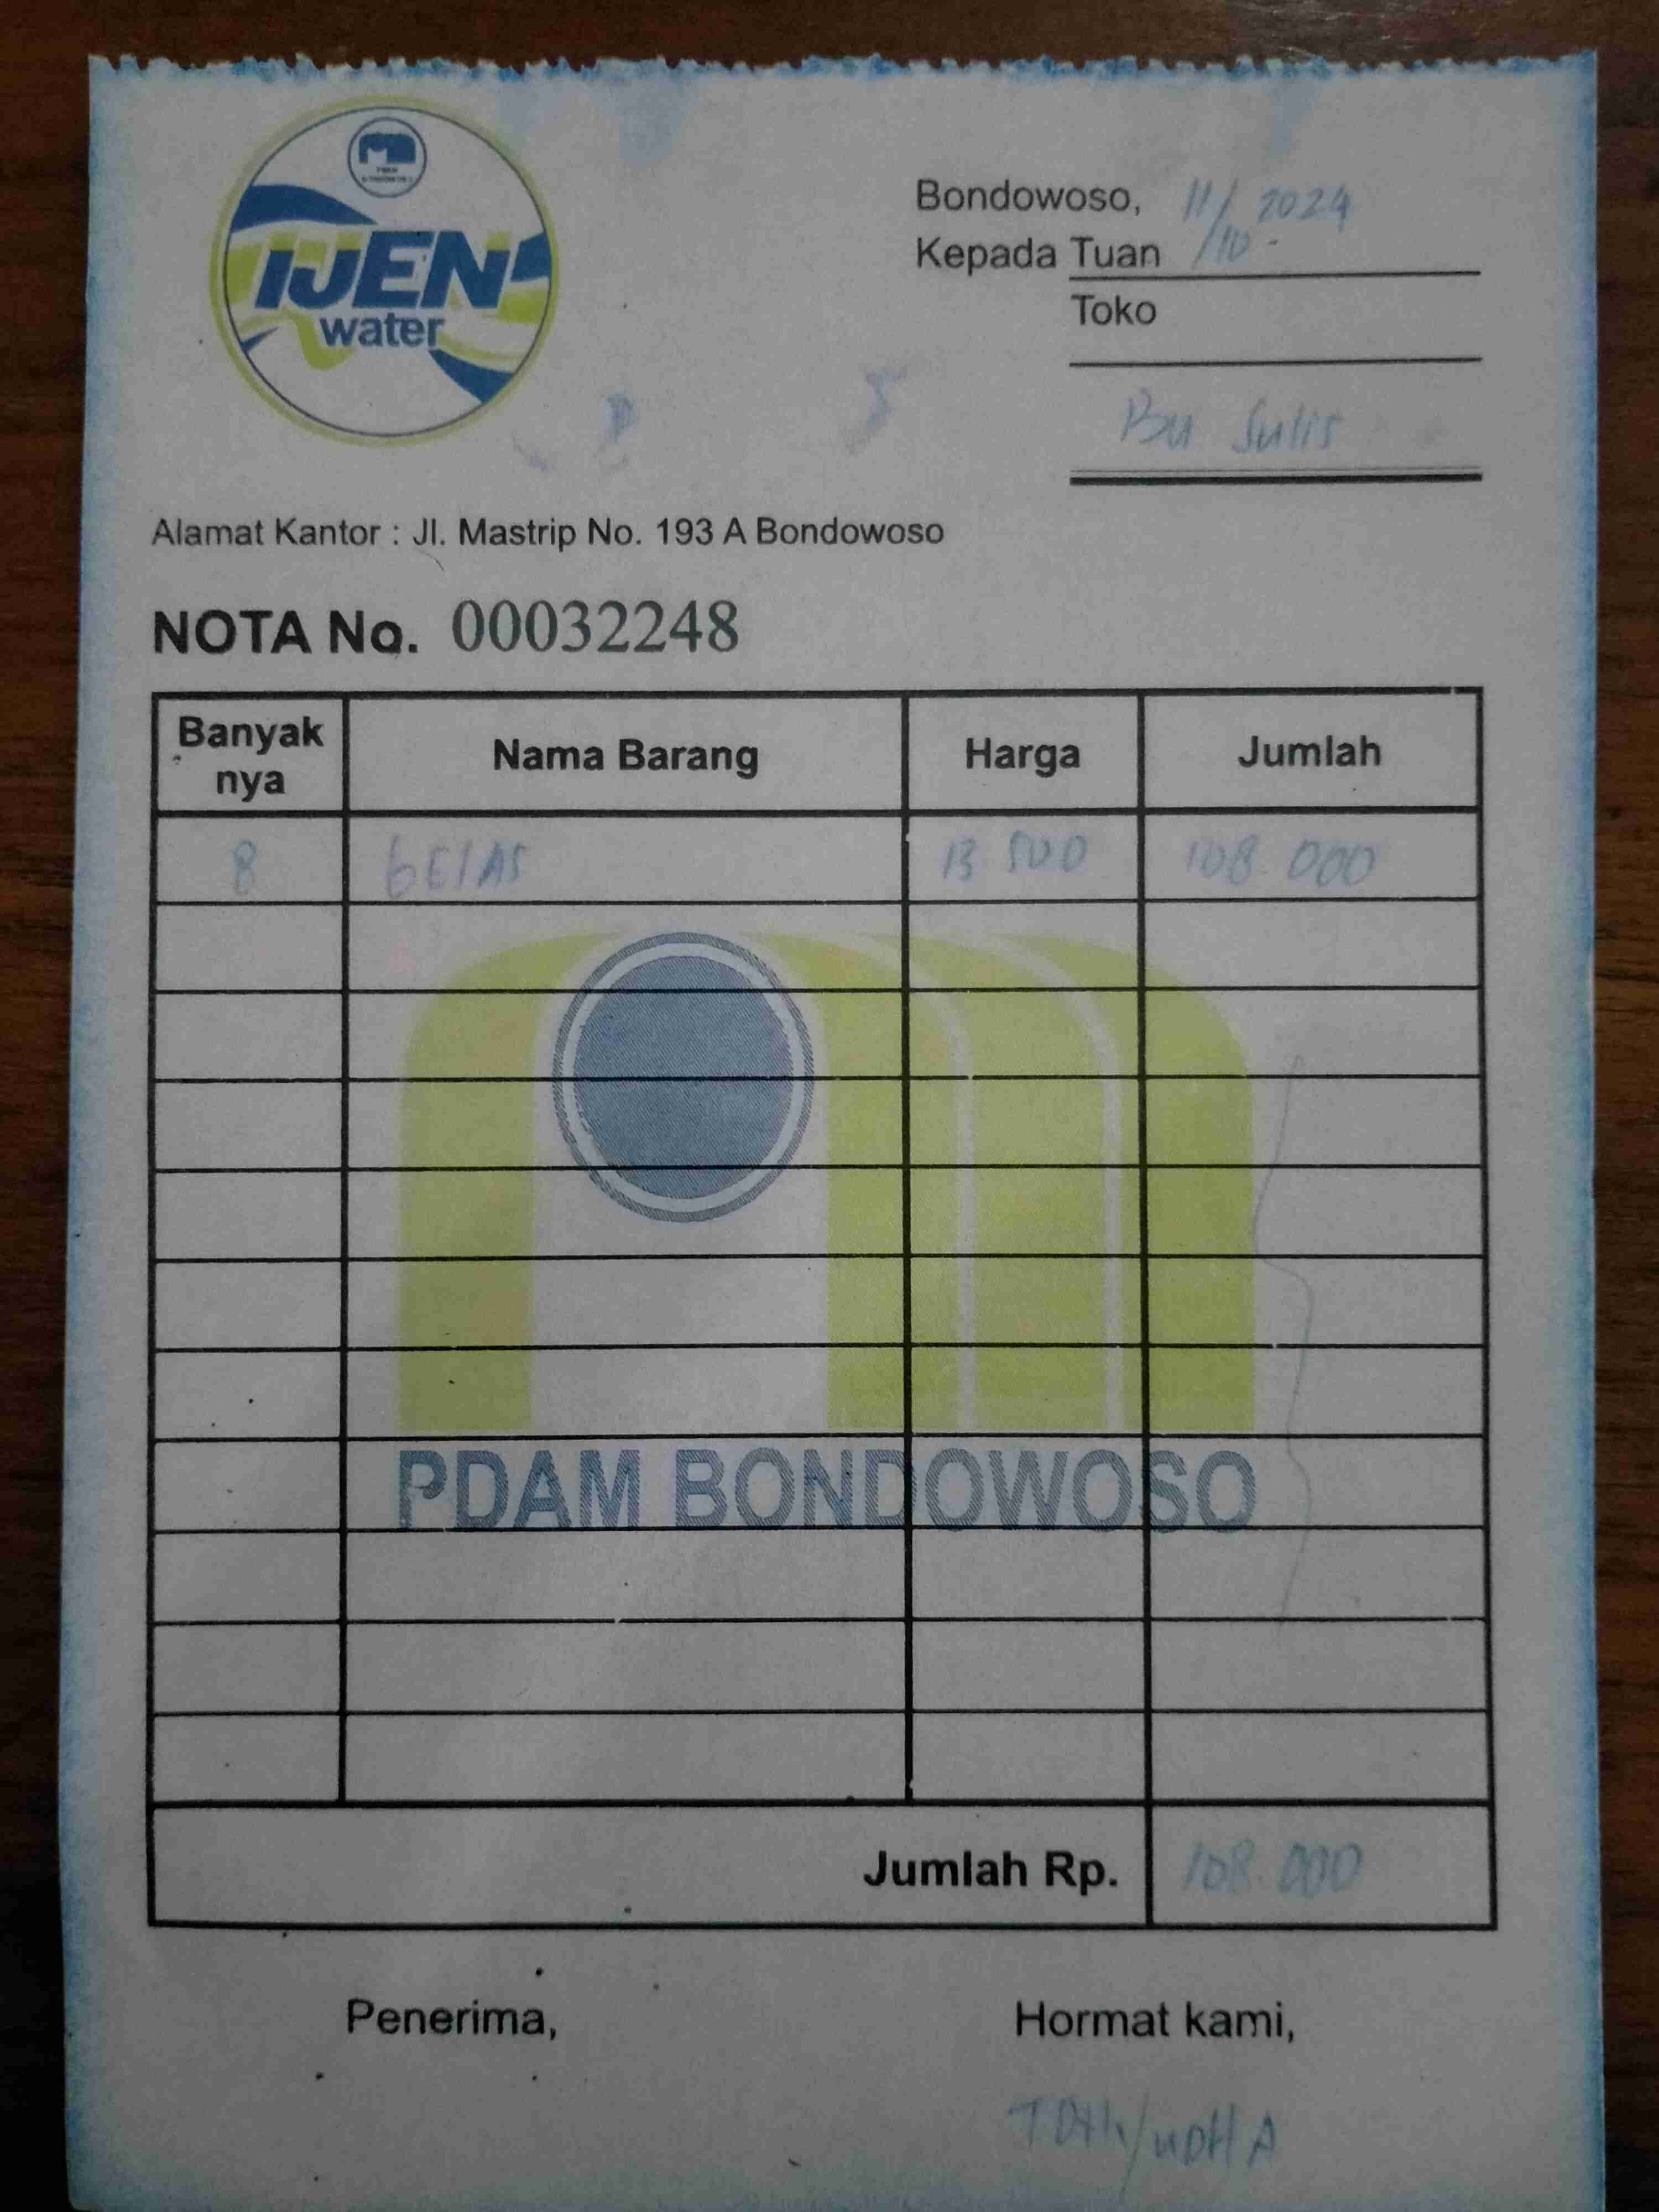 IJEN
water
Bondowoso, 11/10 - 2024
Kepada Tuan
Toko
Bu Sulis
Alamat Kantor : Jl. Mastrip No. 193 A Bondowoso
NOTA No. 00032248
Banyak nya Nama Barang Harga Jumlah
8 GElAS 13 500 108.000
PDAM BONDOWOSO
Jumlah Rp. 108.000
Penerima, Hormat kami,